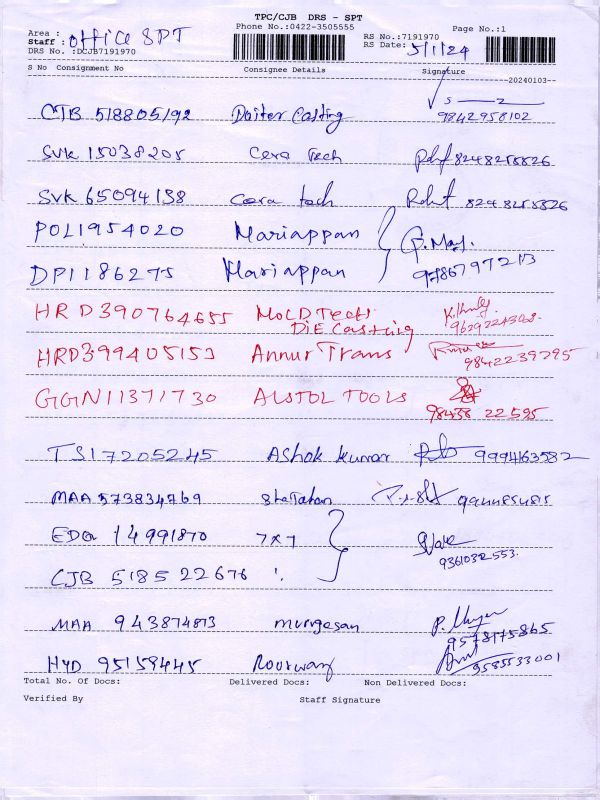 TPC/CJB DRS - SPT
Phone No.:0422-3505555
Page No.:1
Area :
Staff : office SPT
RS No.:7191970
DRS No. :DCJB7191970
RS Date: 5/1/24
S No Consignment No Consignee Details Signature
20240103
CJB 518805192 Daiter Casting 9842958102
SVK 15038205 Cera Tech 8248258826
SVK 65094138 Cera tech 8248258826
POL1954020 Mariappan
DP1186275 Mariappan 9786797213
HRD390764655 MOLD Tech
DIE Casting
HRD399405153 Annur Trans 9842239295
GGN11371730 ALSTOL TOOLS 98438 22595
TS17205245 Ashok kumar 9994163582
MAA 573834769
EDQ 14991870 7x7
9361032553
CJB 518522676 "
MAA 943874813 murgesan P.
9578175865
HYD 95159445 9585533001
Total No. Of Docs: Delivered Docs: Non Delivered Docs:
Verified By Staff Signature